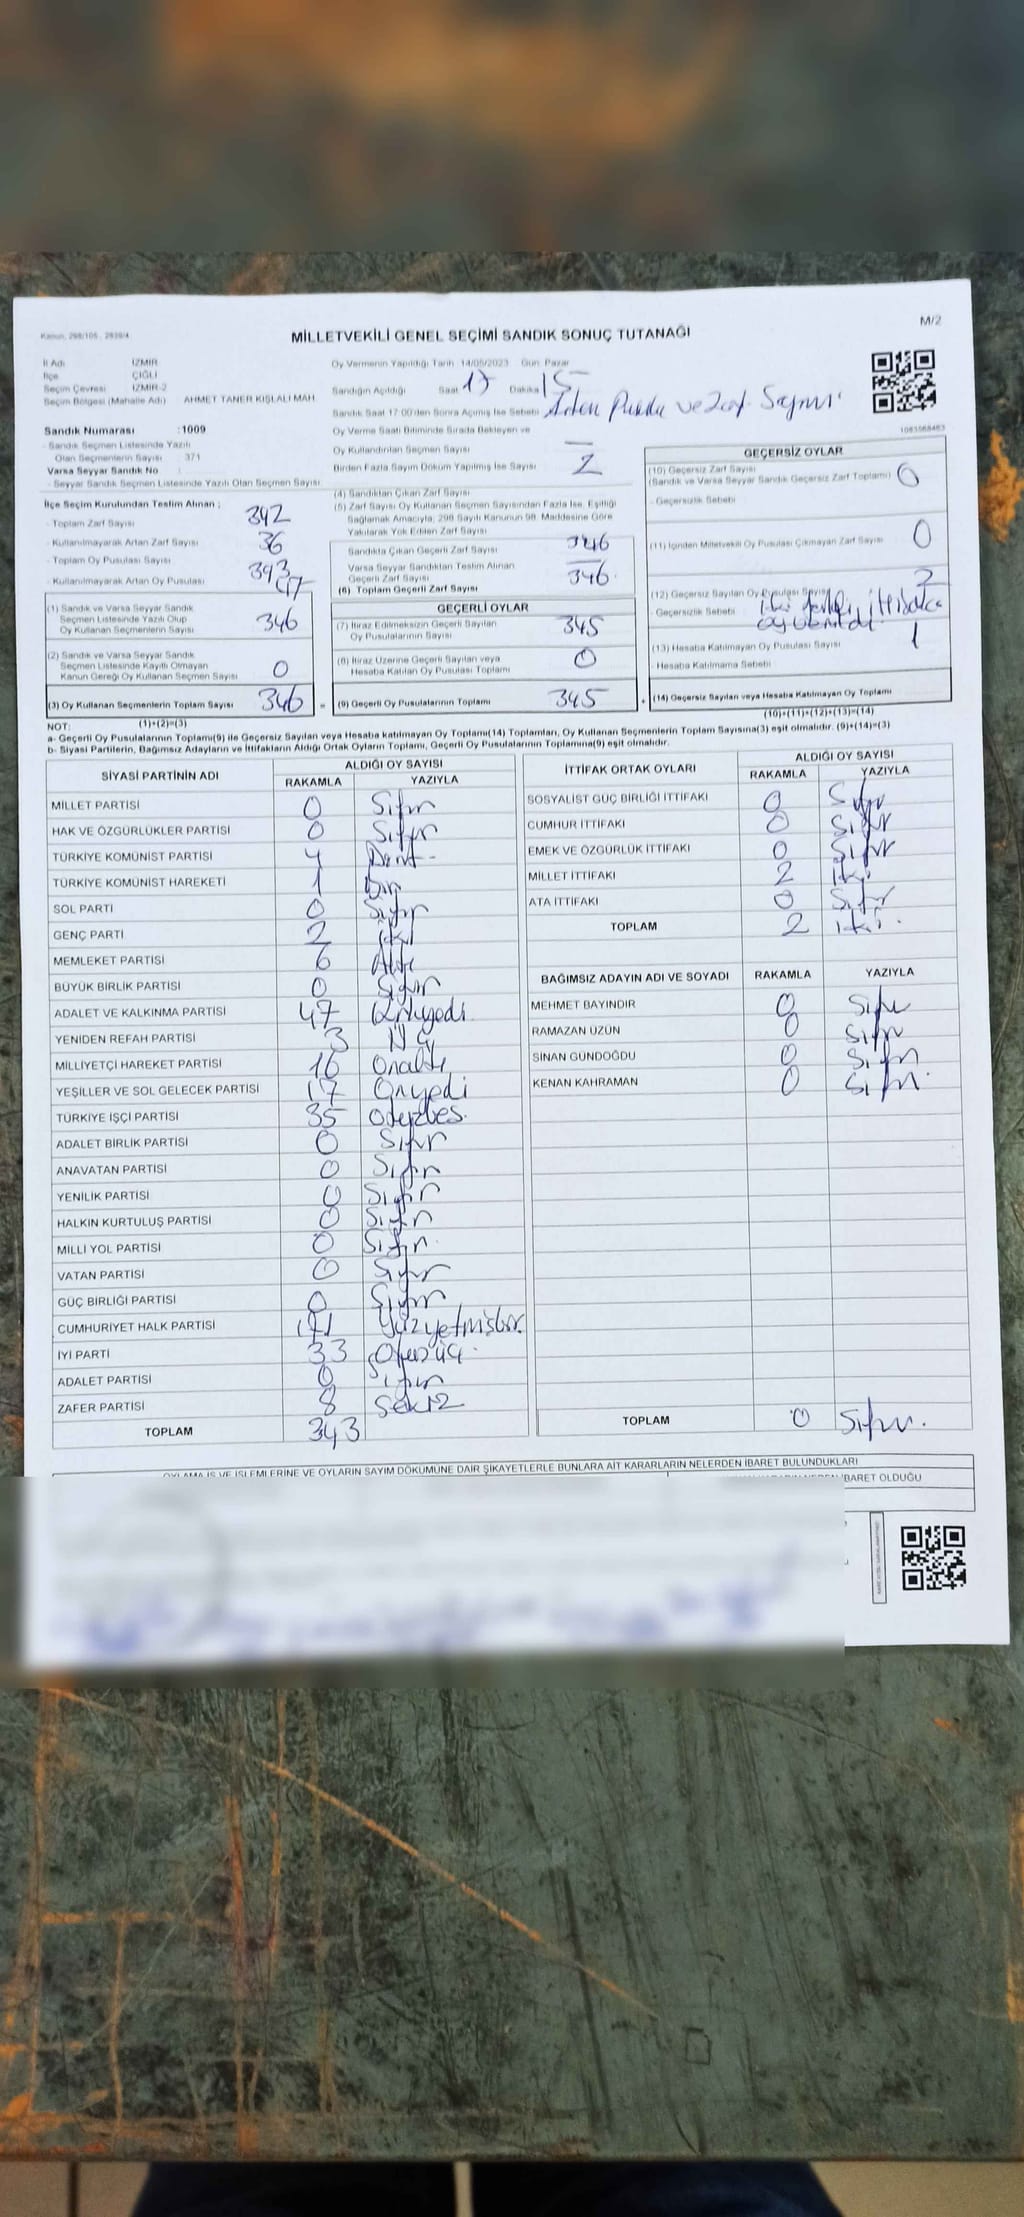 M/2
Kanun, 298/105 , 2839/4
MİLLETVEKİLİ GENEL SEÇİMİ SANDIK SONUÇ TUTANAĞI
İl Adı İZMİR
İlçe ÇİĞLİ
Seçim Çevresi İZMİR-2
Seçim Bölgesi (Mahalle Adı) AHMET TANER KIŞLALI MAH.
Oy Vermenin Yapıldığı Tarih 14/05/2023 Gün: Pazar
Sandığın Açıldığı Saat 17 Dakika 15
Sandık Saat 17:00'den Sonra Açılmış İse Sebebi Artan Pusula ve Zarf Sayımı
1083568463
Sandık Numarası :1009
Sandık Seçmen Listesinde Yazılı
Olan Seçmenlerin Sayısı 371
Varsa Seyyar Sandık No :
- Seyyar Sandık Seçmen Listesinde Yazılı Olan Seçmen Sayısı
Oy Verme Saati Bitiminde Sırada Bekleyen ve
Oy Kullandırılan Seçmen Sayısı —
Birden Fazla Sayım Döküm Yapılmış İse Sayısı 2
İlçe Seçim Kurulundan Teslim Alınan ;
- Toplam Zarf Sayısı 342
- Kullanılmayarak Artan Zarf Sayısı 36
- Toplam Oy Pusulası Sayısı 393
- Kullanılmayarak Artan Oy Pusulası 47
(1) Sandık ve Varsa Seyyar Sandık
Seçmen Listesinde Yazılı Olup
Oy Kullanan Seçmenlerin Sayısı 346
(2) Sandık ve Varsa Seyyar Sandık
Seçmen Listesinde Kayıtlı Olmayan
Kanun Gereği Oy Kullanan Seçmen Sayısı 0
(3) Oy Kullanan Seçmenlerin Toplam Sayısı 346
(1)+(2)=(3)
(4) Sandıktan Çıkan Zarf Sayısı
(5) Zarf Sayısı Oy Kullanan Seçmen Sayısından Fazla İse, Eşitliği
Sağlamak Amacıyla, 298 Sayılı Kanunun 98. Maddesine Göre
Yakılarak Yok Edilen Zarf Sayısı
Sandıkta Çıkan Geçerli Zarf Sayısı 346
Varsa Seyyar Sandıktan Teslim Alınan
Geçerli Zarf Sayısı —
(6) Toplam Geçerli Zarf Sayısı 346
GEÇERLİ OYLAR
(7) İtiraz Edilmeksizin Geçerli Sayılan
Oy Pusulalarının Sayısı 345
(8) İtiraz Üzerine Geçerli Sayılan veya
Hesaba Katılan Oy Pusulası Toplamı 0
= (9) Geçerli Oy Pusulalarının Toplamı 345
GEÇERSİZ OYLAR
(10) Geçersiz Zarf Sayısı
(Sandık ve Varsa Seyyar Sandık Geçersiz Zarf Toplamı) 0
- Geçersizlik Sebebi
(11) İçinden Milletvekili Oy Pusulası Çıkmayan Zarf Sayısı 0
(12) Geçersiz Sayılan Oy Pusulası Sayısı
- Geçersizlik Sebebi : iki
(13) Hesaba Katılmayan Oy Pusulası Sayısı 1
Hesaba Katılmama Sebebi
+ (14) Geçersiz Sayılan veya Hesaba Katılmayan Oy Toplamı
(10)+(11)+(12)+(13)=(14)
NOT:
a- Geçerli Oy Pusulalarının Toplamı(9) ile Geçersiz Sayılan veya Hesaba katılmayan Oy Toplamı(14) Toplamları, Oy Kullanan Seçmenlerin Toplam Sayısına(3) eşit olmalıdır. (9)+(14)=(3)
b- Siyasi Partilerin, Bağımsız Adayların ve İttifakların Aldığı Ortak Oyların Toplamı, Geçerli Oy Pusulalarının Toplamına(9) eşit olmalıdır.
SİYASİ PARTİNİN ADI ALDIĞI OY SAYISI
RAKAMLA YAZIYLA
MİLLET PARTİSİ 0 Sıfır
HAK VE ÖZGÜRLÜKLER PARTİSİ 0 Sıfır
TÜRKİYE KOMÜNİST PARTİSİ 4 Dört
TÜRKİYE KOMÜNİST HAREKETİ 1 Bir
SOL PARTİ 0 Sıfır
GENÇ PARTİ 2 iki
MEMLEKET PARTİSİ 6 Altı
BÜYÜK BİRLİK PARTİSİ 0 Sıfır
ADALET VE KALKINMA PARTİSİ 47 Kırkyedi
YENİDEN REFAH PARTİSİ 3 Üç
MİLLİYETÇİ HAREKET PARTİSİ 16 Onaltı
YEŞİLLER VE SOL GELECEK PARTİSİ 17 Onyedi
TÜRKİYE İŞÇİ PARTİSİ 35 Otuzbeş
ADALET BİRLİK PARTİSİ 0 Sıfır
ANAVATAN PARTİSİ 0 Sıfır
YENİLİK PARTİSİ 0 Sıfır
HALKIN KURTULUŞ PARTİSİ 0 Sıfır
MİLLİ YOL PARTİSİ 0 Sıfır
VATAN PARTİSİ 0 Sıfır
GÜÇ BİRLİĞİ PARTİSİ 0 Sıfır
CUMHURİYET HALK PARTİSİ 171 Yüzyetmişbir
İYİ PARTİ 33 Otuzüç
ADALET PARTİSİ 0 Sıfır
ZAFER PARTİSİ 8 Sekiz
TOPLAM 343
İTTİFAK ORTAK OYLARI ALDIĞI OY SAYISI
RAKAMLA YAZIYLA
SOSYALİST GÜÇ BİRLİĞİ İTTİFAKI 0 Sıfır
CUMHUR İTTİFAKI 0 Sıfır
EMEK VE ÖZGÜRLÜK İTTİFAKI 0 Sıfır
MİLLET İTTİFAKI 2 iki
ATA İTTİFAKI 0 Sıfır
TOPLAM 2 iki
BAĞIMSIZ ADAYIN ADI VE SOYADI RAKAMLA YAZIYLA
MEHMET BAYINDIR 0 Sıfır
RAMAZAN UZUN 0 Sıfır
SİNAN GÜNDOĞDU 0 Sıfır
KENAN KAHRAMAN 0 Sıfır
TOPLAM 0 Sıfır
OYLAMA İŞ VE İŞLEMLERİNE VE OYLARIN SAYIM DÖKÜMÜNE DAİR ŞİKAYETLERLE BUNLARA AİT KARARLARIN NELERDEN İBARET BULUNDUKLARI
İBARET OLDUĞU